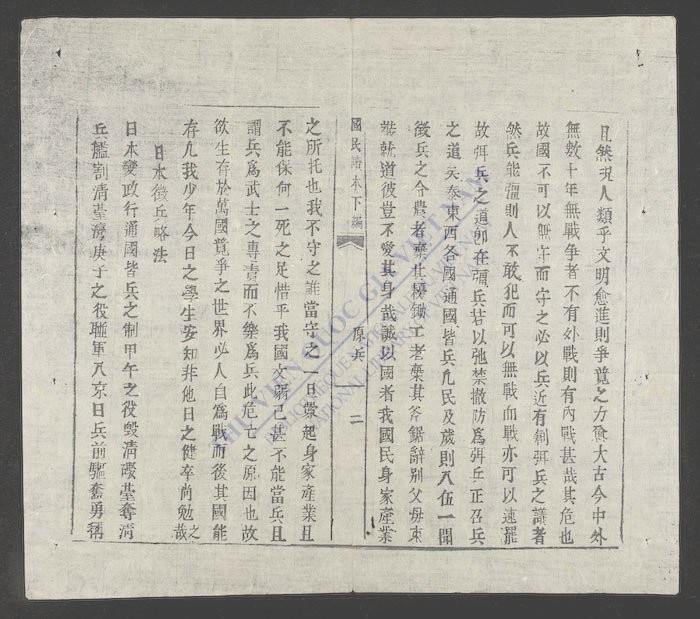 且然現人類乎文明愈進則爭競之力愈大古今中外
無數十年無戰爭者不有外戰則有內戰甚哉其危也
故國不可以無守而守之必以兵近有倡弭兵之議者
然兵能彊則人不敢犯而可以無戰而戰亦可以速罷
故弭兵之道卽在彊兵若以弛禁撤防爲弭兵正召兵
之道矣泰東西各國通國皆兵凡民及歲則入伍一聞
徵兵之令農者棄其耰鋤工者棄其斧鋸辭別父母束
裝就道彼豈不愛其身哉誠以國者我國民身家產業
國民讀本下編
原兵
二
之所托也我不守之誰當守之一旦釁起身家產業且
不能保何一死之足惜乎我國文弱已甚不能當兵且
謂兵爲武士之專責而不樂爲兵此危亡之原因也故
欲生存於萬國競爭之世界必人自爲戰而後其國能
存凡我少年今日之學生安知非他日之健卒尚勉之哉
日本徵兵略法
日本變政行通國皆兵之制甲午之役毀清礮臺奪清
兵艦割清臺灣庚子之役聯軍入京日兵前驅奮勇稱
THƯ VIỆN QUỐC GIA VIỆT NAM
NATIONAL LIBRARY